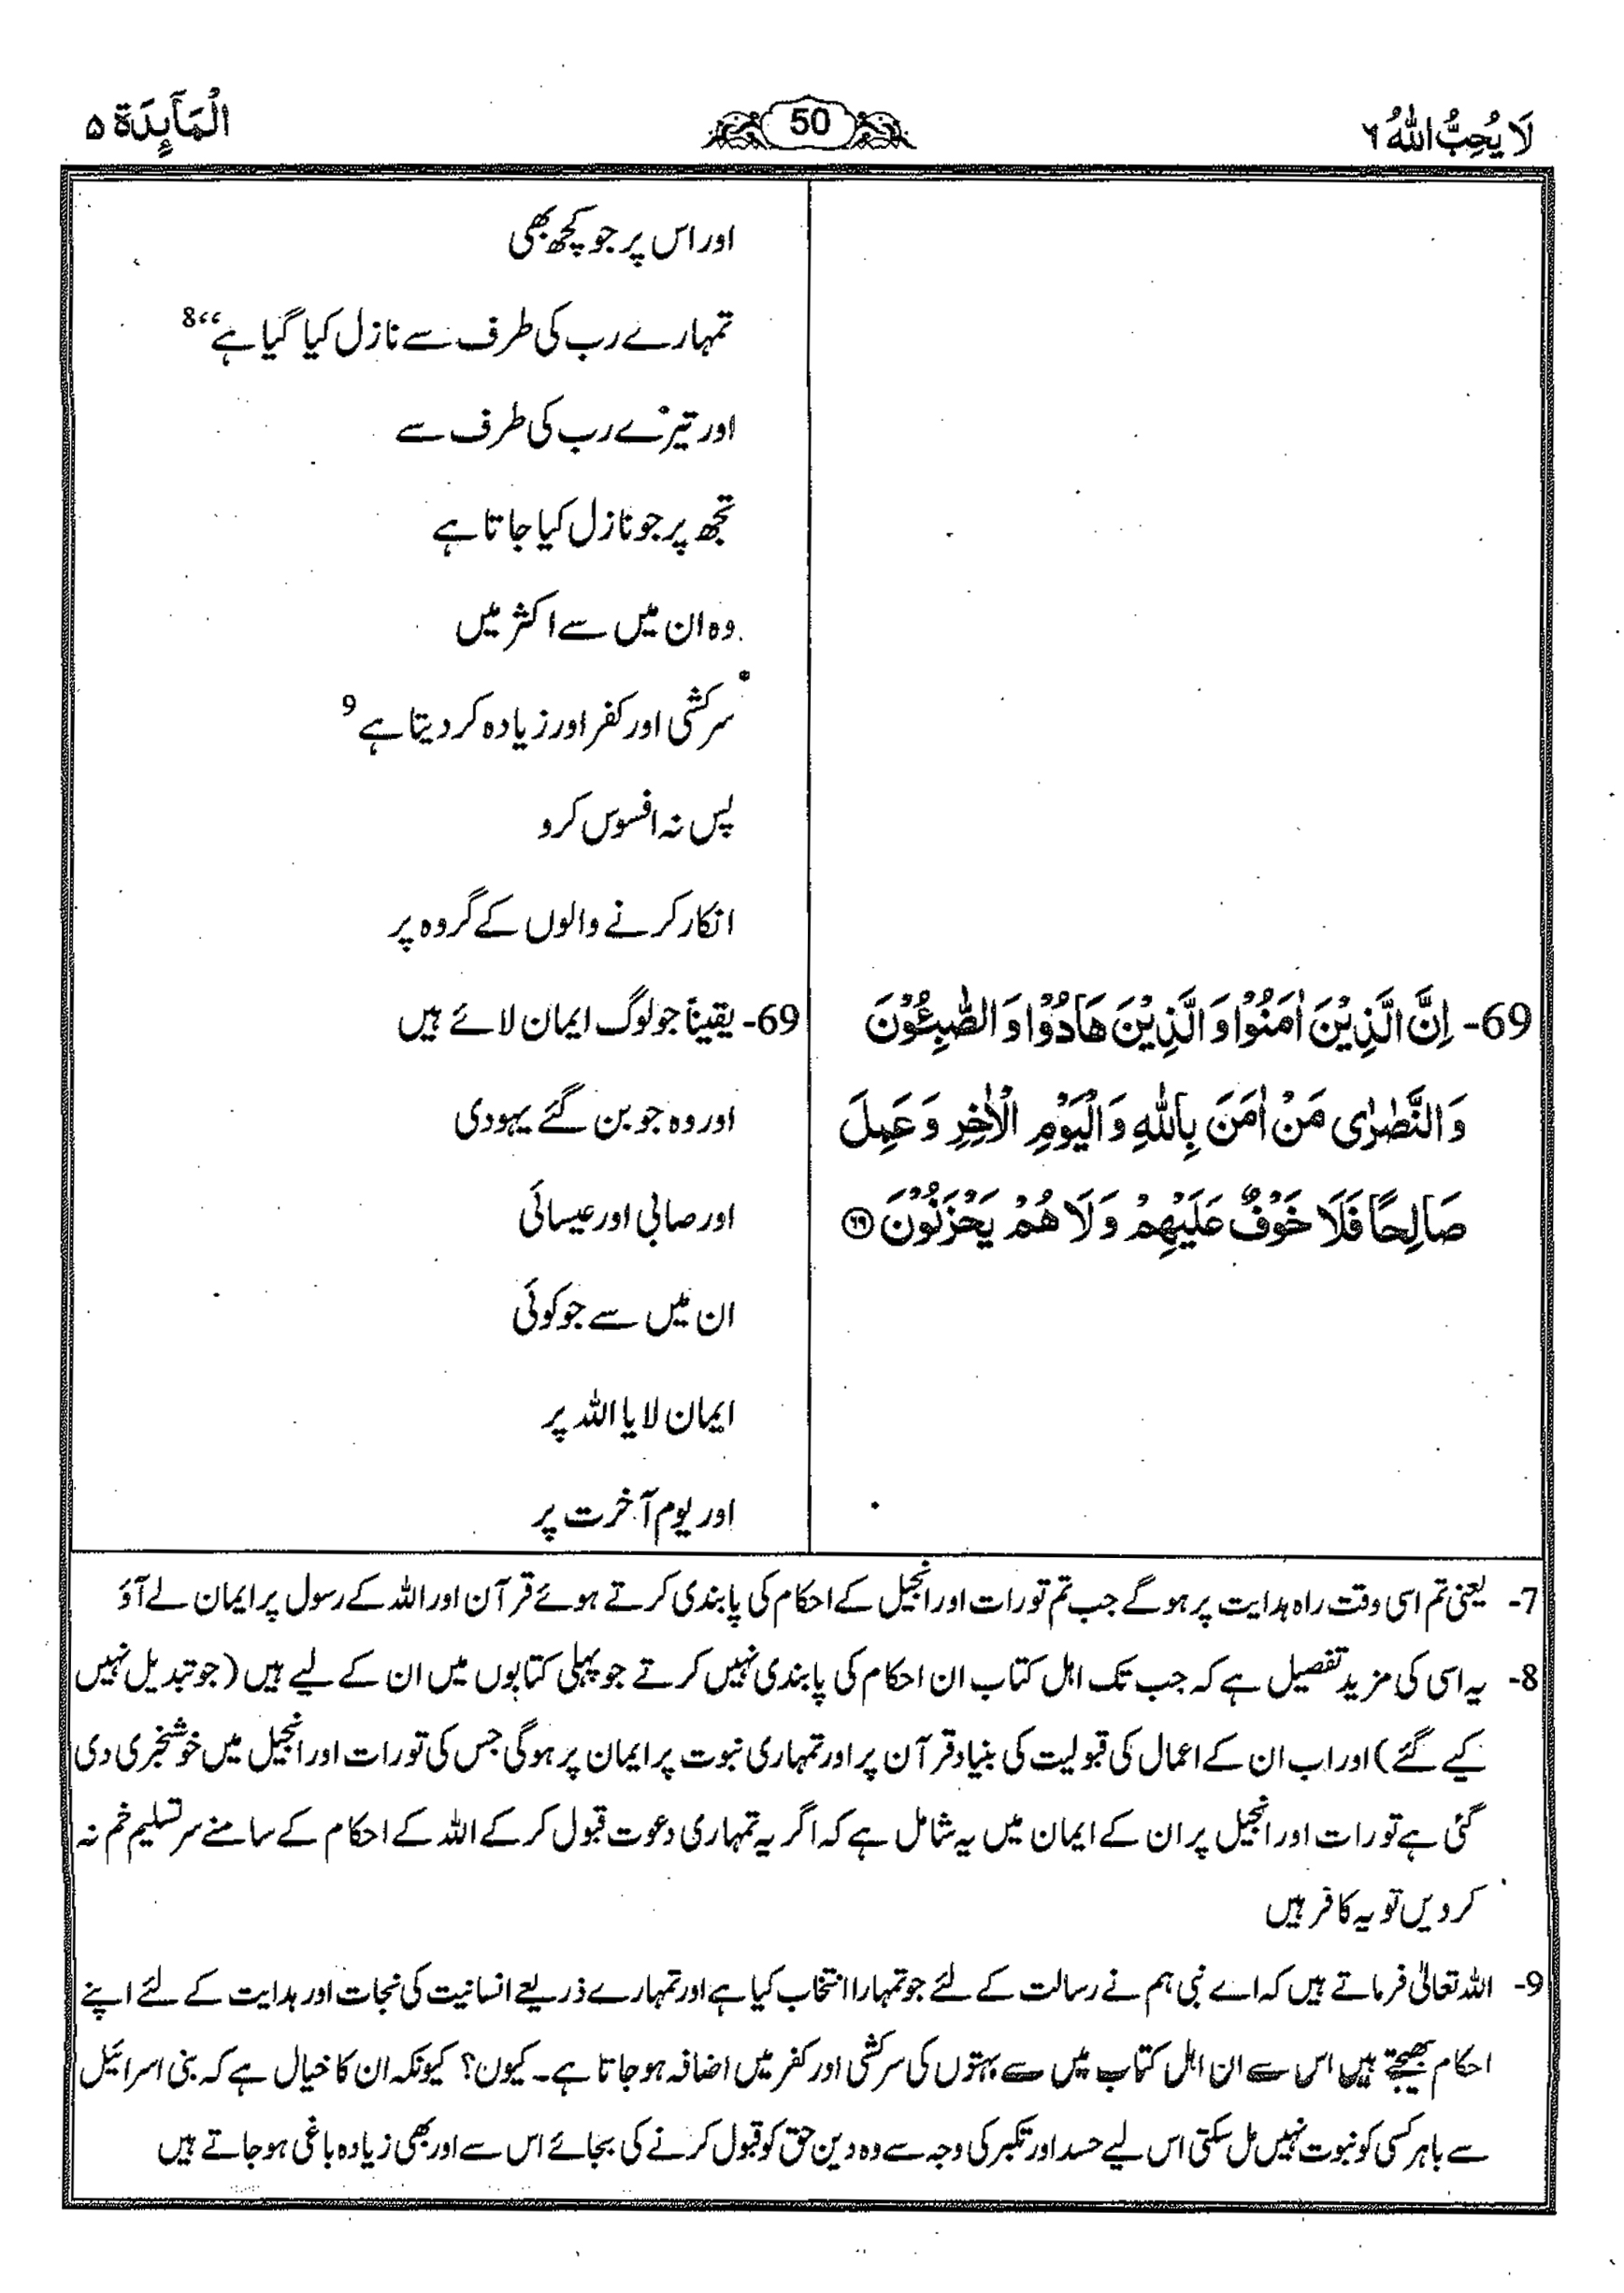 لَا يُحِبُّ اللّٰهُ ٦
50
الْمَآىِٕدَة ٥
اور اس پر جو کچھ بھی
تمہارے رب کی طرف سے نازل کیا گیا ہے‘‘ 8
اور تیرے رب کی طرف سے
تجھ پر جو نازل کیا جاتا ہے
وہ ان میں سے اکثر میں
سرکشی اور کفر اور زیادہ کر دیتا ہے 9
پس نہ افسوس کرو
انکار کرنے والوں کے گروہ پر
69- اِنَّ الَّذِيْنَ اٰمَنُوْا وَ الَّذِيْنَ هَادُوْا وَ الصّٰبِـُٔوْنَ
وَ النَّصٰرٰى مَنْ اٰمَنَ بِاللّٰهِ وَ الْيَوْمِ الْاٰخِرِ وَ عَمِلَ
صَالِحًا فَلَا خَوْفٌ عَلَيْهِمْ وَ لَا هُمْ يَحْزَنُوْنَ ۝٦٩
69- یقیناً جو لوگ ایمان لائے ہیں
اور وہ جو بن گئے یہودی
اور صابی اور عیسائی
ان میں سے جو کوئی
ایمان لایا اللہ پر
اور یوم آخرت پر
7- یعنی تم اسی وقت راہ ہدایت پر ہو گے جب تم تورات اور انجیل کے احکام کی پابندی کرتے ہوئے قرآن اور اللہ کے رسول پر ایمان لے آؤ
8- یہ اسی کی مزید تفصیل ہے کہ جب تک اہل کتاب ان احکام کی پابندی نہیں کرتے جو پہلی کتابوں میں ان کے لیے ہیں (جو تبدیل نہیں
کیے گئے) اور اب ان کے اعمال کی قبولیت کی بنیاد قرآن پر اور تمہاری نبوت پر ایمان پر ہوگی جس کی تورات اور انجیل میں خوشخبری دی
گئی ہے تورات اور انجیل پر ان کے ایمان میں یہ شامل ہے کہ اگر یہ تمہاری دعوت قبول کر کے اللہ کے احکام کے سامنے سر تسلیم خم نہ
کر دیں تو یہ کافر ہیں
9- اللہ تعالیٰ فرماتے ہیں کہ اے نبی ہم نے رسالت کے لئے جو تمہارا انتخاب کیا ہے اور تمہارے ذریعے انسانیت کی نجات اور ہدایت کے لئے اپنے
احکام بھیجتے ہیں اس سے ان اہل کتاب میں سے بہتوں کی سرکشی اور کفر میں اضافہ ہو جاتا ہے۔ کیوں؟ کیونکہ ان کا خیال ہے کہ بنی اسرائیل
سے باہر کسی کو نبوت نہیں مل سکتی اس لیے حسد اور تکبر کی وجہ سے وہ دین حق کو قبول کرنے کی بجائے اس سے اور بھی زیادہ باغی ہو جاتے ہیں